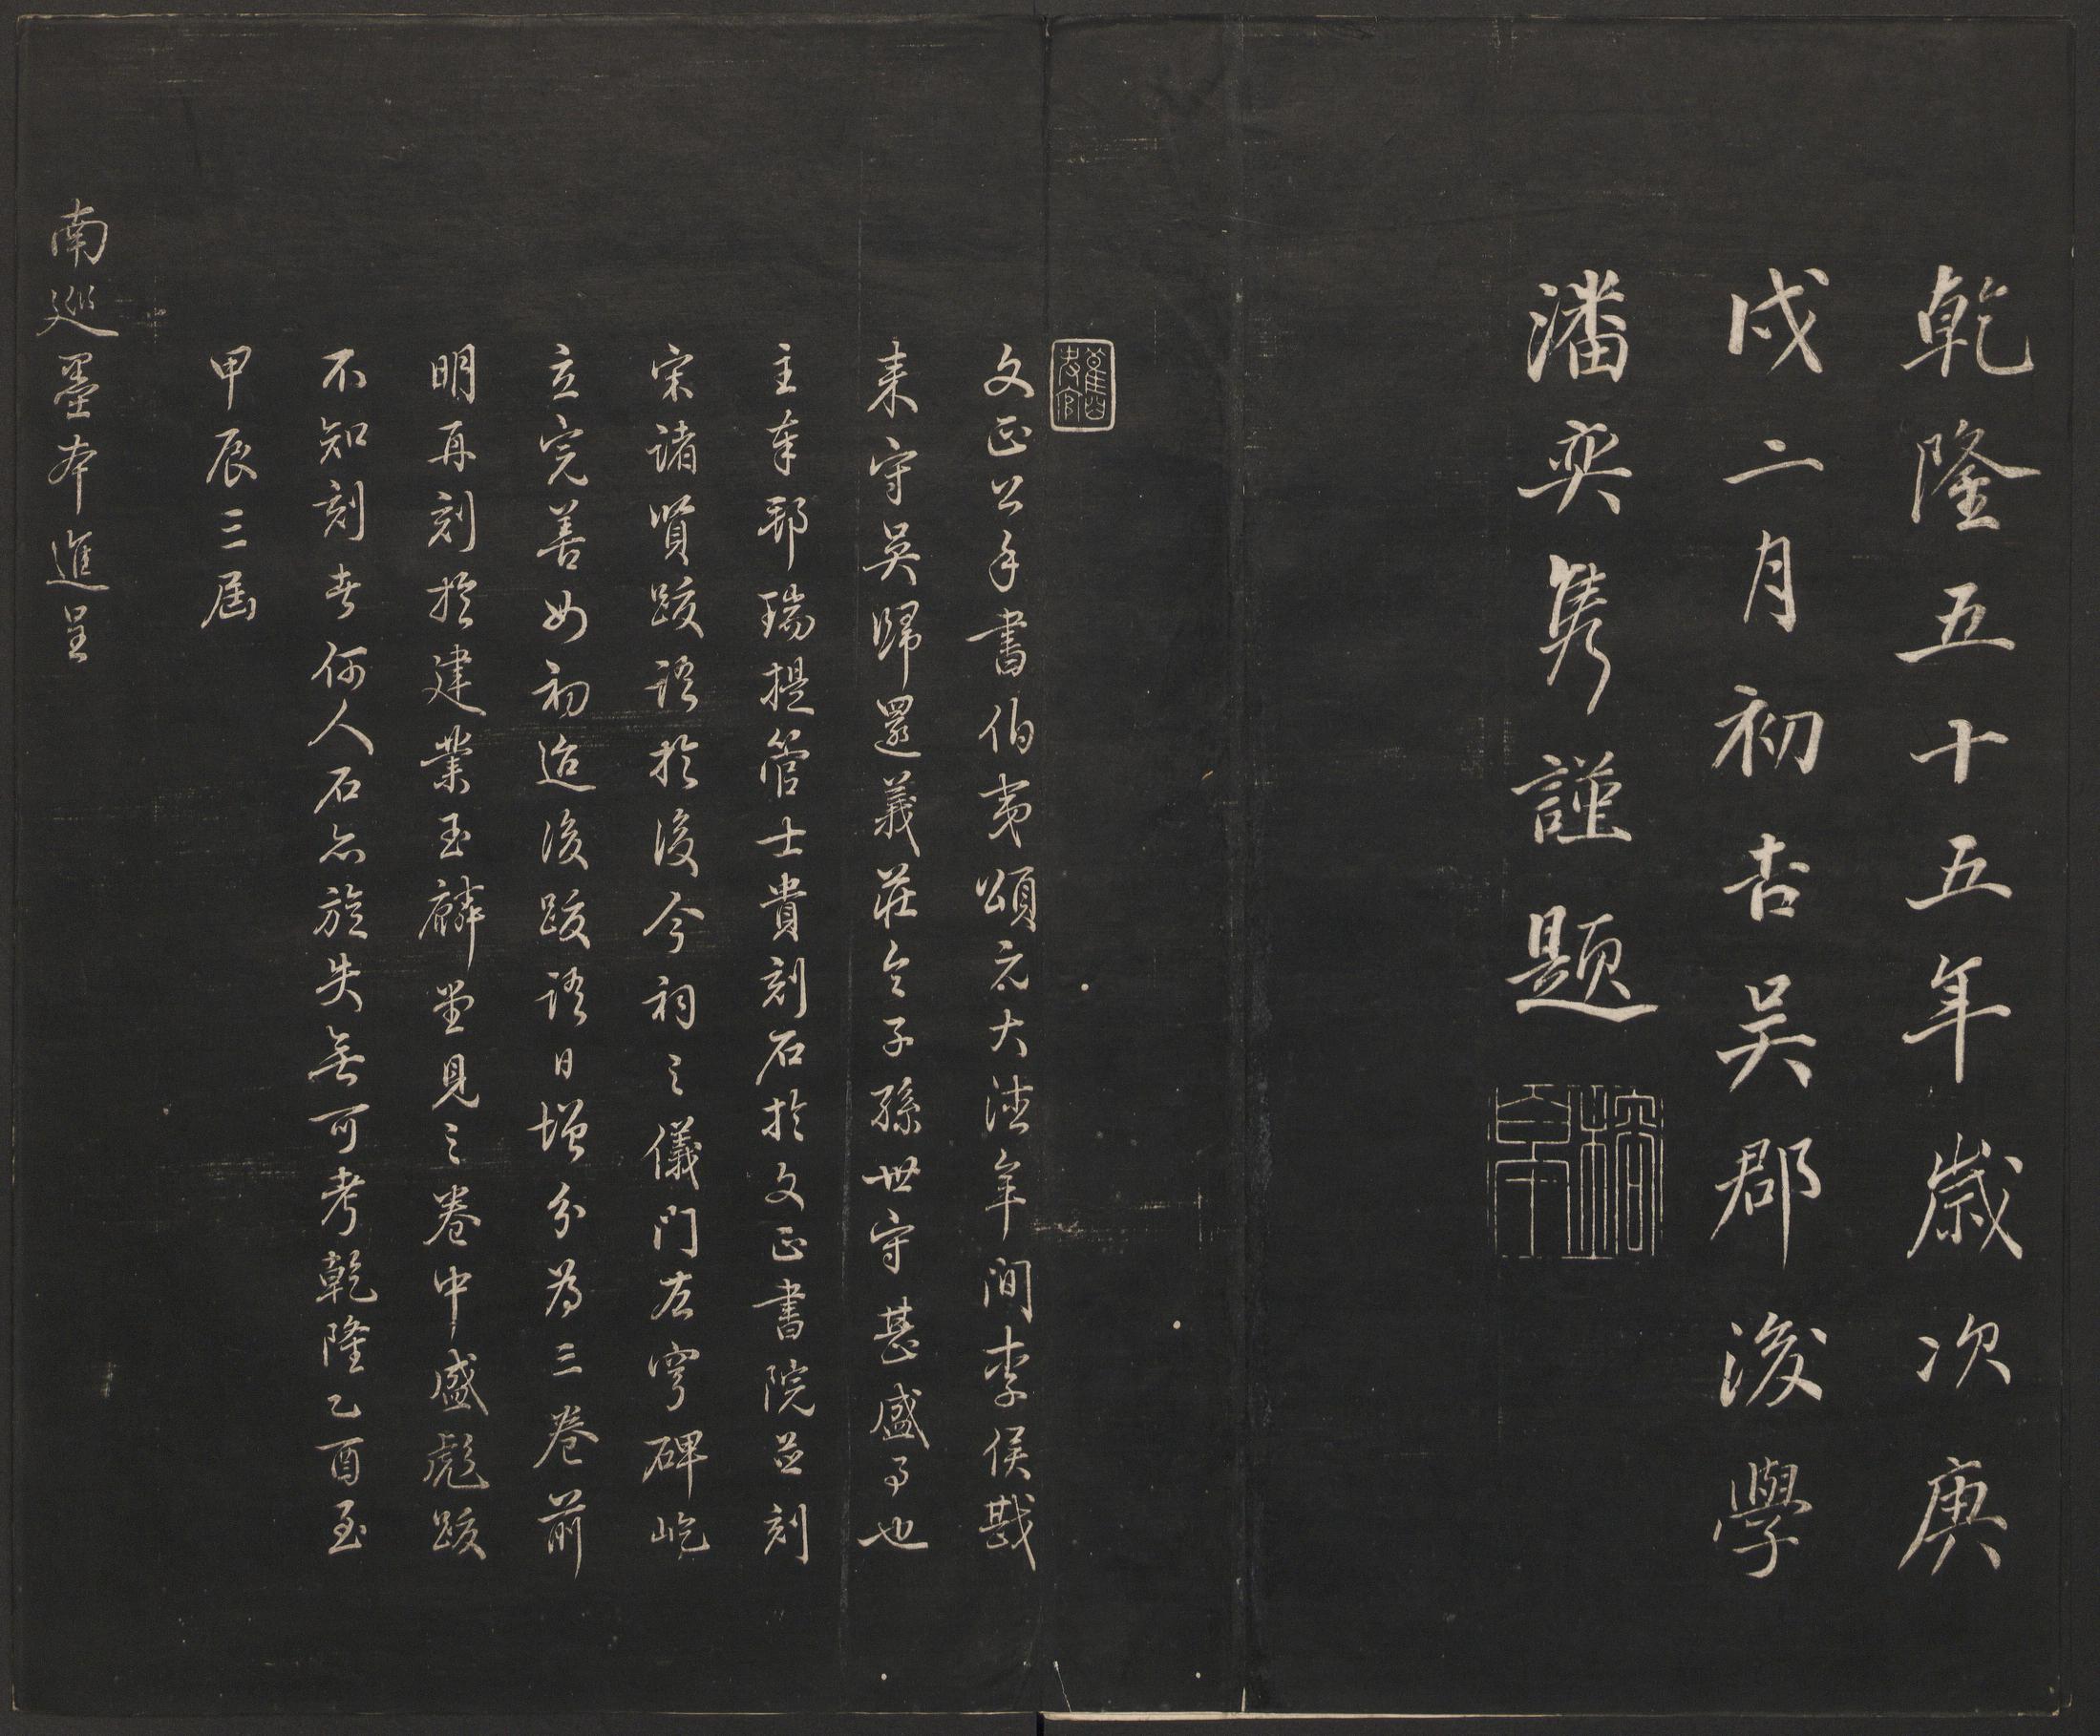 乾隆五十五年歲次庚
戌二月初吉吳郡後學
潘奕雋謹題
文正公手書伯夷頌元大德年間李侯戡
来守吳歸還義莊令子孫世守甚盛事也
主奉邨瑞提管士貴刻石於文正書院並刻
宋諸賢跋語於後今祠之儀門左穹碑屹
立完善如初迨後跋語日增分為三卷前
明再刻於建業玉麟堂見之卷中盛彪跋
不知刻者何人石亦旋失無可考乾隆乙酉至
甲辰三屆
南巡墨本進呈